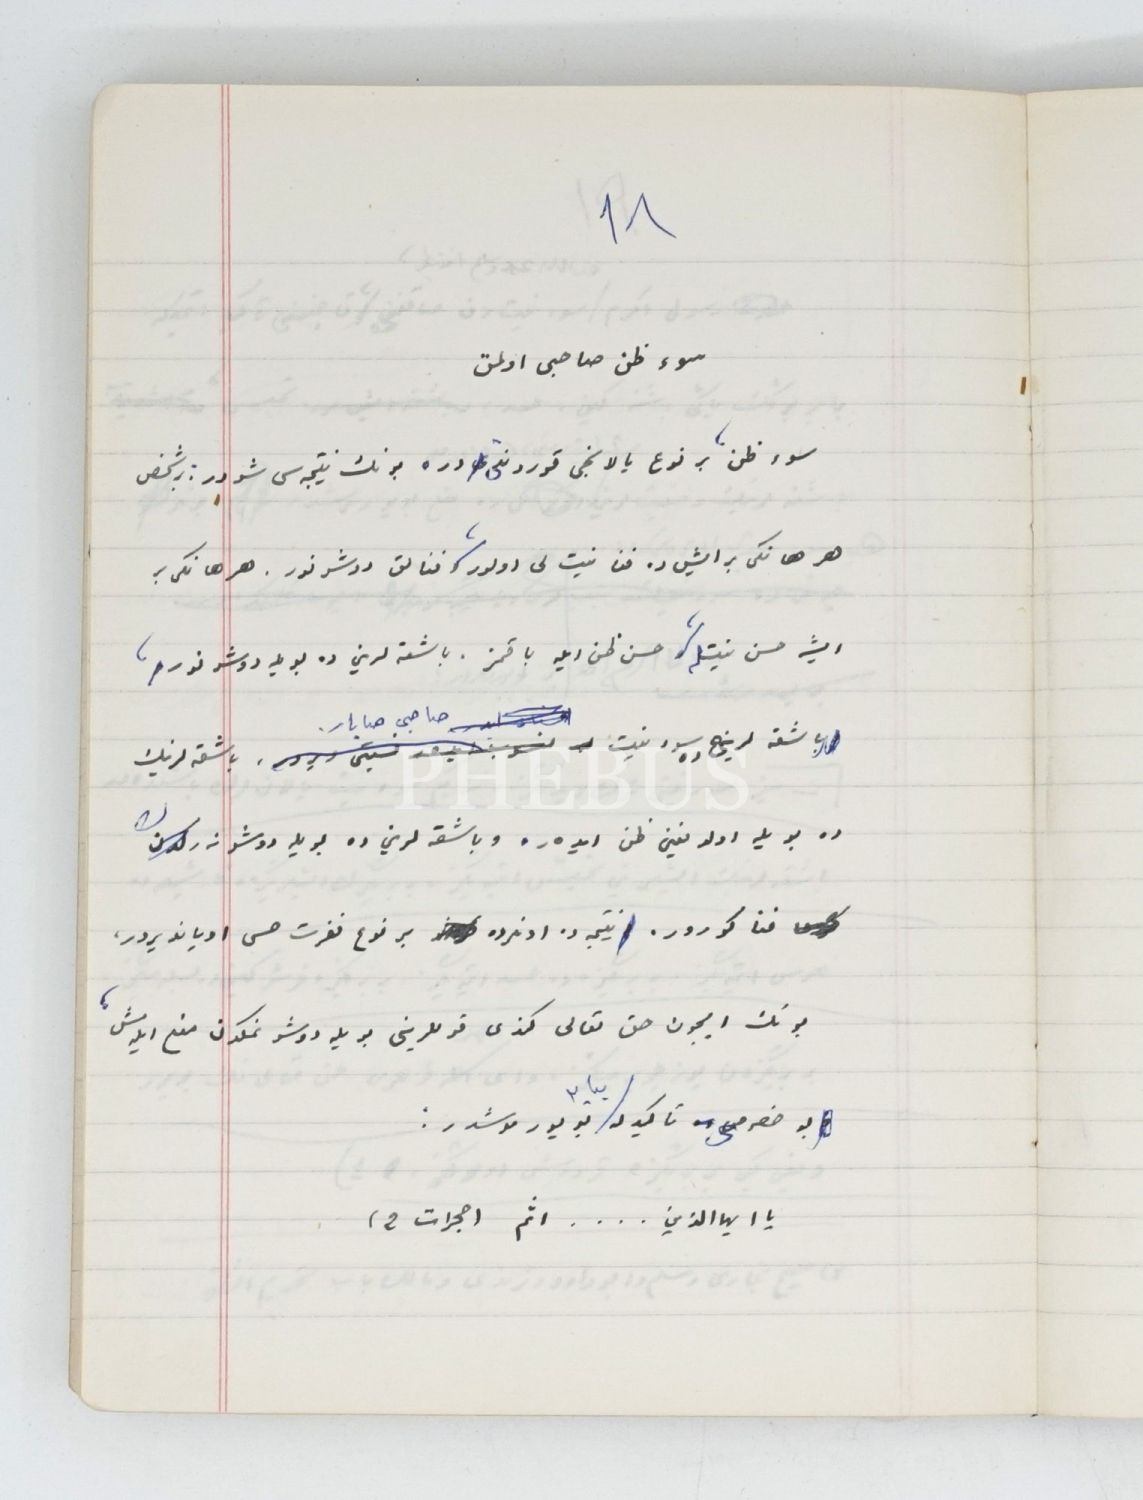 ١٨
سوء ظن صاحبى اولمق
سوء ظن، بر نوع يالانجى قورونتى در. بونك نتيجه سى شودر: بر شخص
هر هانكى بر ايشده فنا نيت لى اولور، فنالق دوشونور. هر هانكى بر
ايشه حسن نيتله، حسن ظن ايله باقمز. باشقه لرينى ده بويله دوشونور،
باشقه لرينى ده سوء نيت صاحبى صايار. باشقه لرينك
ده بويله اولديغنى ظن ايدر. و باشقه لرينى ده بويله دوشونه رك
فنا كورور. نتيجه ده اونلرده بر نوع نفرت حسى اويانديرر.
بونك ايچون حق تعالى كندى قوللرينى بويله دوشونمكدن منع ايله مش،
بو خصوصده تاكيدله بيام بويورمشدر:
يا ايها الذين .... اثم (حجرات ٩)
PHEBUS